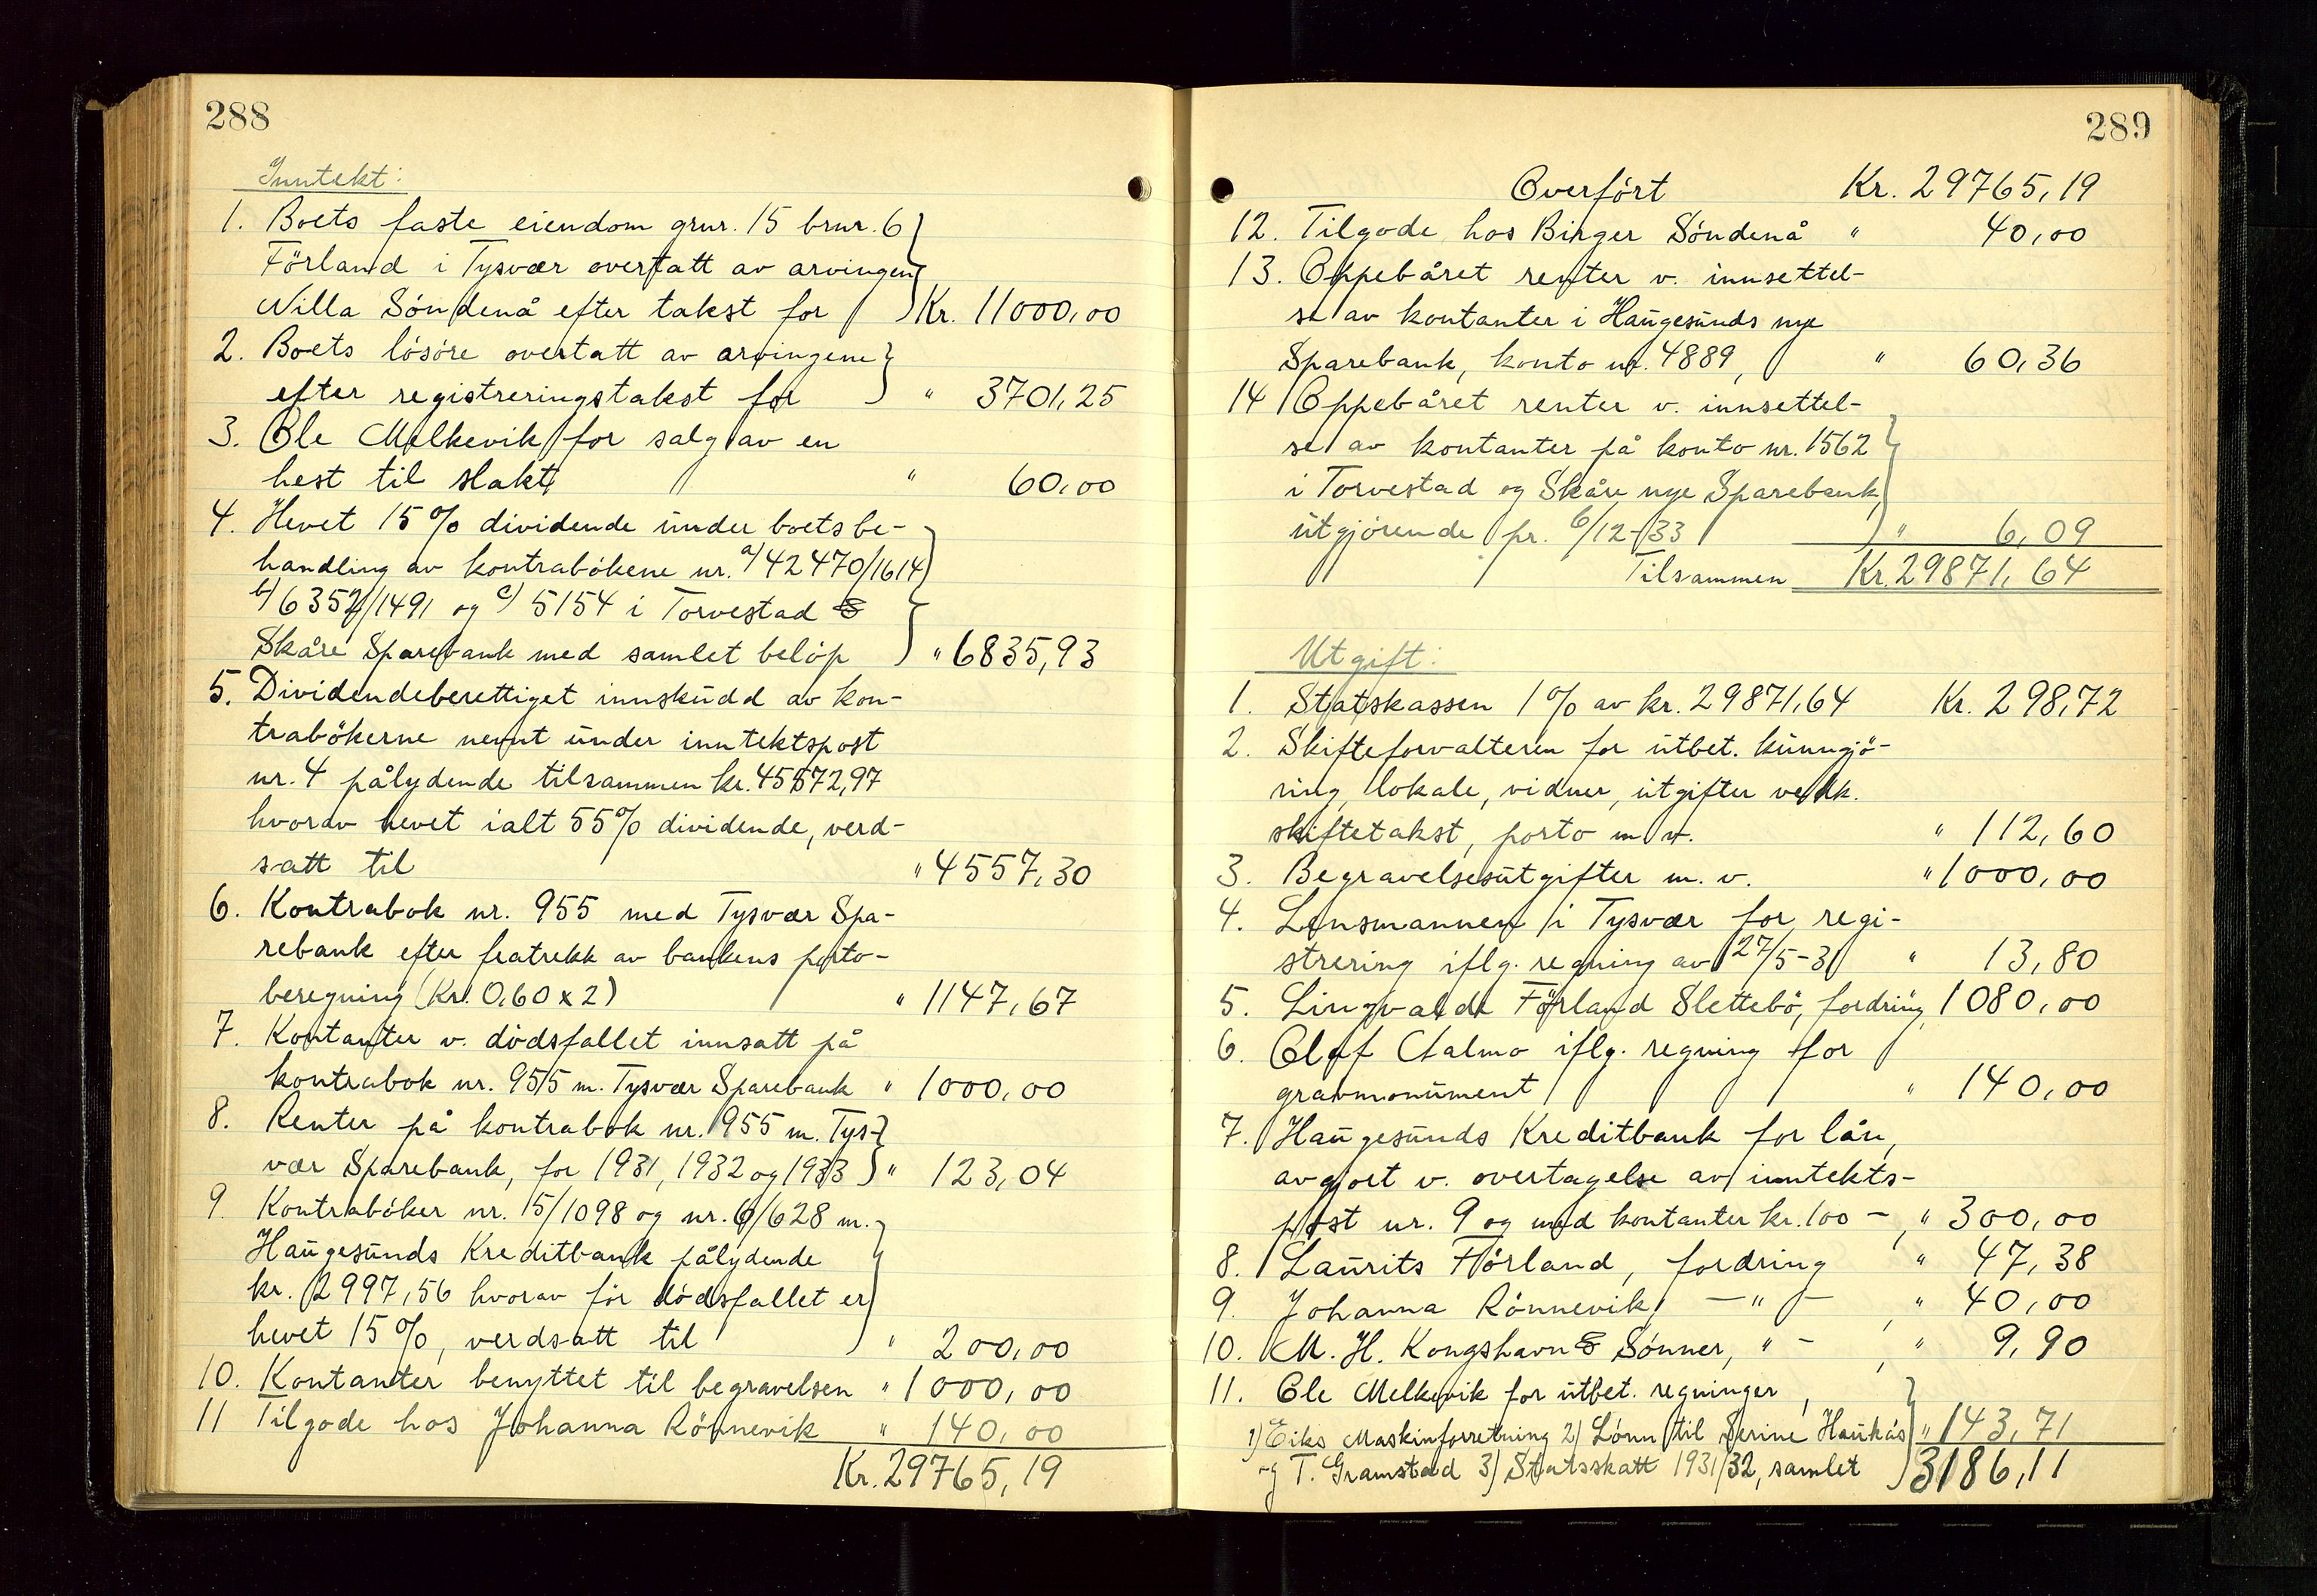 288
Inntekt:
1. Boets faste eiendom gnr. 15 bnr. 6
Förland i Tysvær overtatt av arvingen
Nilla Söndenå efter takst for Kr. 11000,00
2. Boets lösöre overtatt av arvingene
efter registreringstakst for " 3701,25
3. Ole Melkevik for salg av en
hest til slakt " 60,00
4. Hevet 15% dividende under boets be-
handling av kontrabökene nr. a/ 42470/1614
b/ 6352/1491 og c/ 5154 i Torvestad &
Skåre Sparebank med samlet belöp " 6835,93
5. Dividendeberettiget innskudd av kon-
trabökerne nevnt under inntektspost
nr. 4 pålydende tilsammen kr. 45572,97
hvorav hevet ialt 55% dividende, verd-
satt til " 4557,30
6. Kontrabok nr. 955 med Tysvær Spa-
rebank efter fratrekk av bankens porto-
beregning (Kr. 0,60 x 2) " 1147,67
7. Kontanter v. dödsfallet innsatt på
kontrabok nr. 955 m. Tysvær Sparebank " 1000,00
8. Renter på kontrabok nr. 955 m. Tys-
vær Sparebank, for 1931, 1932 og 1933 " 123,04
9. Kontraböker nr. 15/1098 og nr. 6/628 m.
Haugesunds Kreditbank pålydende
kr. 2997,56 hvorav för dödsfallet er
hevet 15%, verdsatt til " 200,00
10. Kontanter benyttet til begravelsen " 1000,00
11 Tilgode hos Johanna Rönnevik " 140,00
Kr. 29765,19
289
Overfört Kr. 29765,19
12. Tilgode hos Birger Söndenå " 40,00
13. Oppebåret renter v. innsettel-
se av kontanter i Haugesunds nye
Sparebank, konto nr. 4889, " 60,36
14 Oppebåret renter v. innsettel-
se av kontanter på konto nr. 1562
i Torvestad og Skåre nye Sparebank,
utgjörende pr. 6/12-33 " 6,09
Tilsammen Kr. 29871,64
Utgift:
1. Statskassen 1% av kr. 29871,64 Kr. 298,72
2. Skifteforvalteren for utbet. kunngjö-
ring, lokale, vidner, utgifter vedk.
skiftetakst, porto m.v. " 112,60
3. Begravelsesutgifter m. v. " 1000,00
4. Lensmannen i Tysvær for regi-
strering iflg. regning av 27/5-31 " 13,80
5. Förland Slettebö, fordring 1080,00
6. Olaf iflg. regning for
gravmonument " 140,00
7. Haugesunds Kreditbank for lån,
avgjort v. overtagelse av inntekts-
post nr. 9 og med kontanter kr. 100 -, " 300,00
8. Laurits Förland, fordring " 47,38
9. Johanna Rönnevik, - " - , " 40,00
10. M. H. Kongshavn & Sönner, " - , " 9,90
11. Ole Melkevik for utbet. regninger,
1) Eiks Maskinforretning 2) Lönn til Serine Haukås " 143,71
og T. Gramstad 3) Statsskatt 1931/32, samlet 3186,11